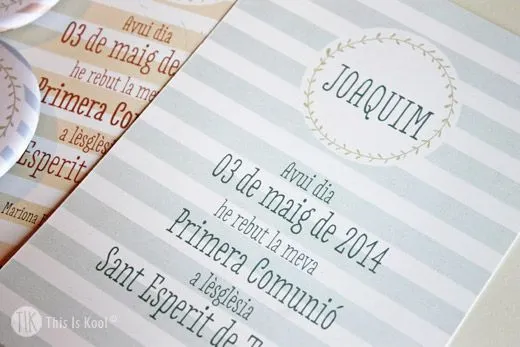 JOAQUIM
Avui dia
03 de maig de 2014
he rebut la meva
Primera Comunió
a lèsglèsia
Sant Esperit de
Avui dia
03 de maig de
he rebut la
Primera Com
a lèsglèsia
Esperit
Mariona
TIK This Is Kool ©